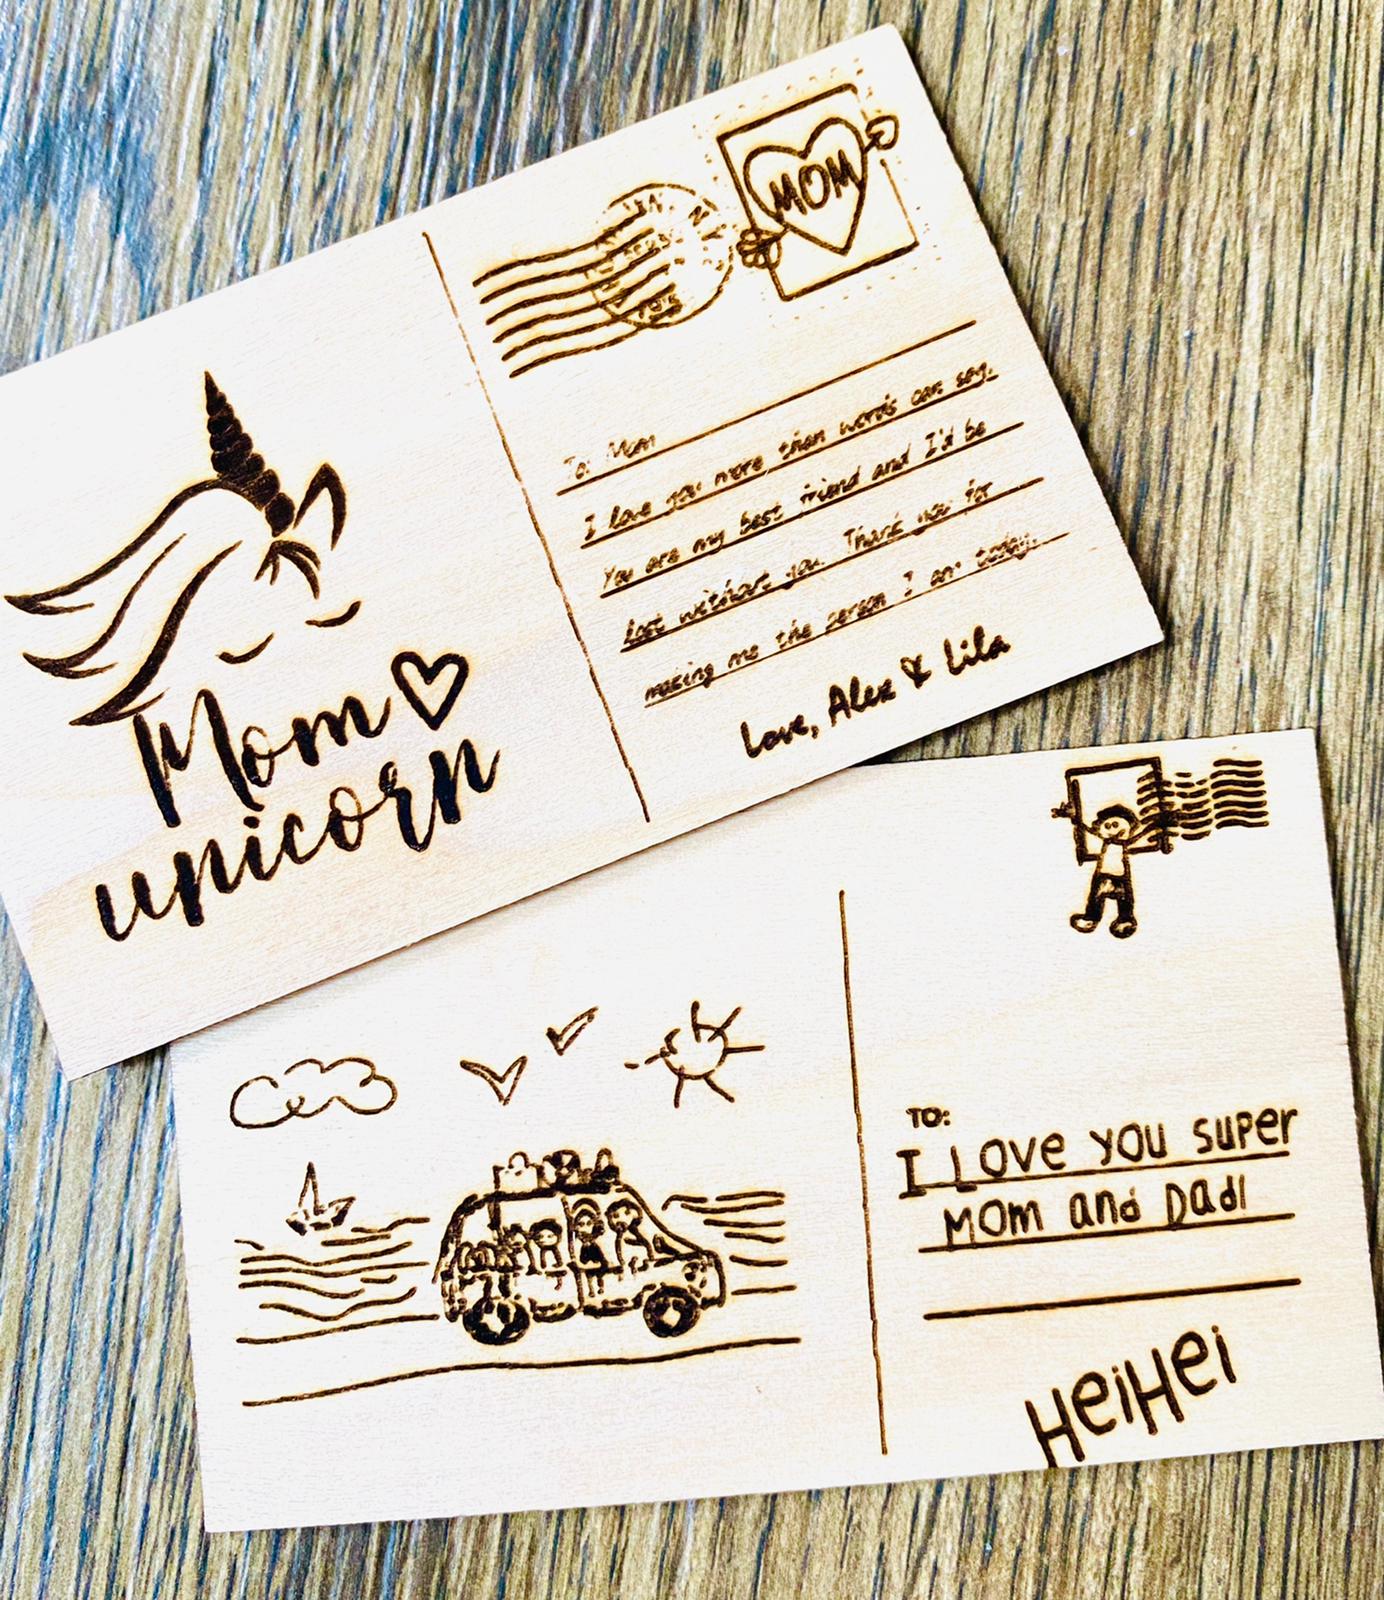 Mom
unicorn
MOM
To: Mom
I love you more than words can say.
You are my best friend and I'd be
lost without you. Thank you for
making me the person I am today.
Love, Alex & Lila
TO:
I LOVE YOU SUPER
MOM and DaD!
HeiHei